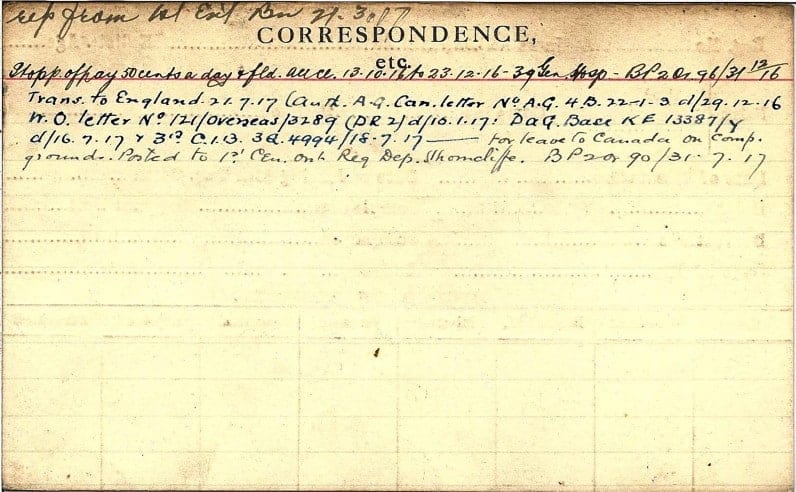 rep from 1st Ent Bn 21.3
CORRESPONDENCE,
etc.
Stopp of pay 50 cents a day & fld. allce. 13.10.16 to 23.12.16 - 39 Gen. Hosp - BP2 Or 96/31 12/16
Trans. to England 21.7.17 (Auth. A.G. Can. letter No A.G. 4.B. 22-1-3 d/29.12.16
W.O. letter No 121/Overseas/3289 (DR2) d/10.1.17: DAG. Base KF 13387/y
d/16.7.17 & 3rd C.I.B. 3Q.4994/18.7.17 — for leave to Canada on comp.
grounds. Posted to 1st Cen. Ont Reg Dep. Shorncliffe. BP2 or 90/31.7.17